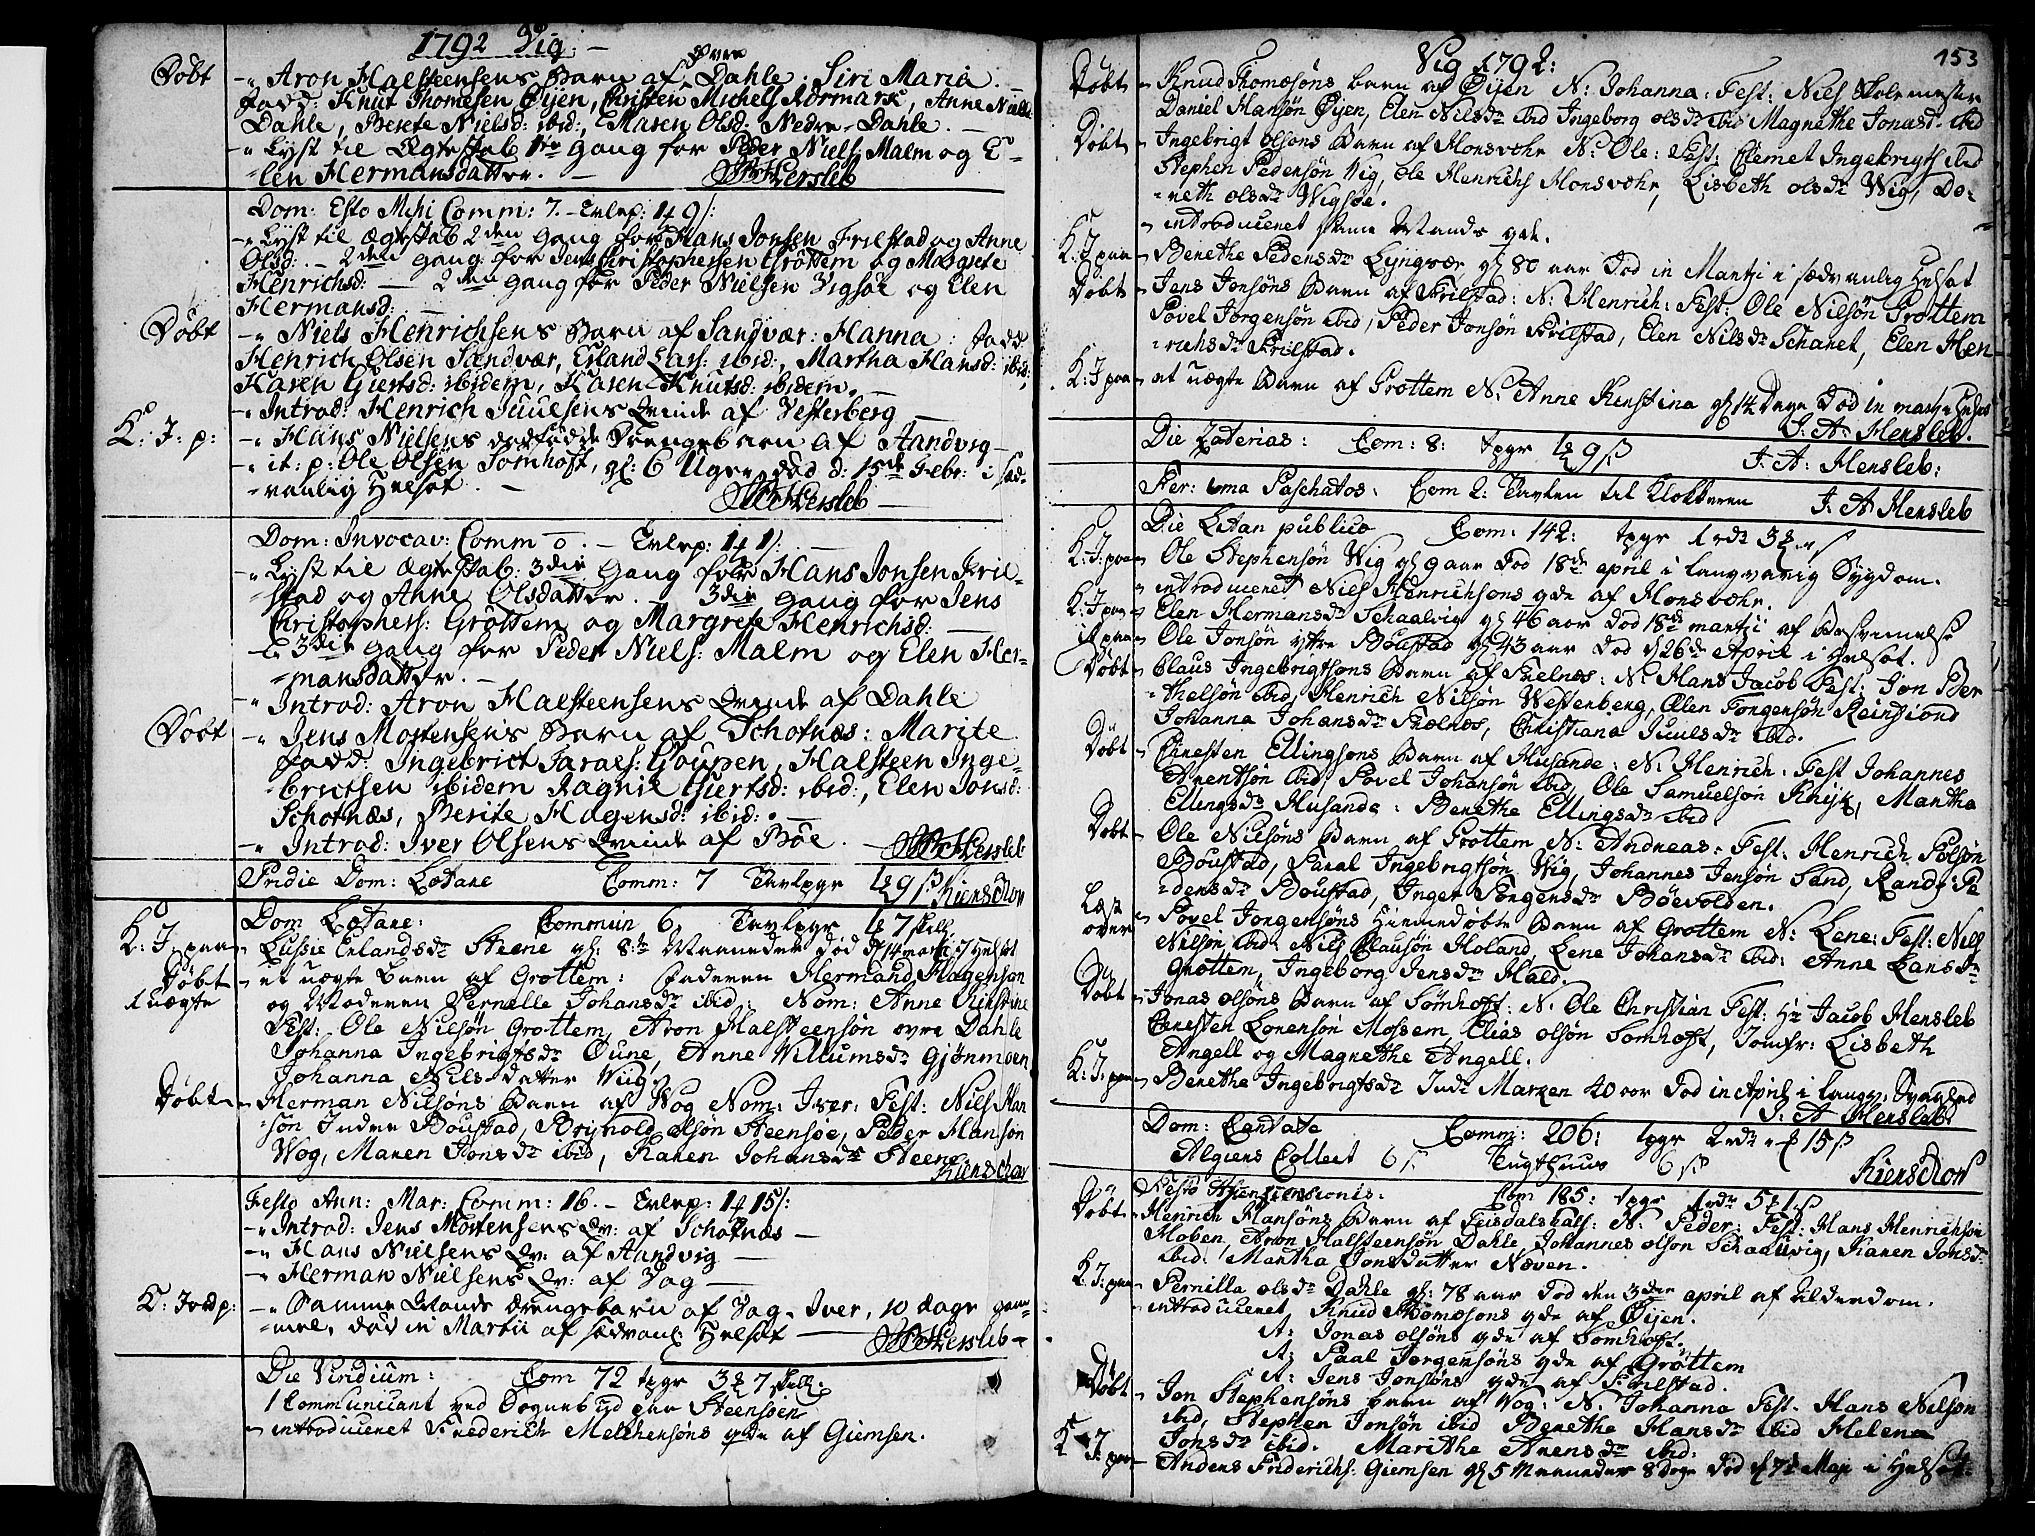 1792 Vig. —
Døbt
-" Aron Halsteensens Barn af Øvre Dahle: Siri Maria. —
fadd: Knut Thomesen Øijen, Christen Michels Aarmark, Anne Niels:
Dahle, Berete Nielsd: ibid:, Maren Olsd: Nedre-Dahle. —
-" Lyst til Ægteskab 1te Gang for Peder Niels: Malm og E-
-len Hermansdatter. — Hersleb
Dom: Esto Mihi Comm: 7. - Tvlep: 1 9 s:
-" Lyst til Ægteskab 2den Gang for Hans Jonsen Frilstad og Anne
Olsd: — 2den Gang for Jens Christophersen Grøttem og Margrete
Henrichsd: — 2den Gang for Peder Nielsen Vigsøe og Elen
Hermansd: —
Døbt
-" Niels Henrichsens Barn af Sandvær: Hanna: fadd
Henrich Olsen Sandvær, Erland Lars: ibid:, Martha Hansd: ibid:
Karen Giertsd: ibidem, Karen Knutsd: ibidem. —
-" Introd: Henrich Juulsens Qvinde af Vesterberg —
K: J: p:
-" Hans Nielsens dødfødde Drengebarn af Aandvig —
-" it: p: Ole Olsen Somhoft, gl: 6 Uger død d: 15de Febr: i sæd-
-vanlig Helsot. — Hersleb —
Dom: Invocav: Comm 0. — Tvlep: 1 1 s: —
-" Lyst til Ægteskab: 3die Gang for Hans Jonsen Fril-
stad og Anne Olsdatter. — 3die Gang for Jens
Christophers: Grøttem og Margrete Henrichsd: —
- 3die Gang for Peder Niels: Malm og Elen Her-
-mansdatter. —
-" Introd: Aron Halsteensens Qvinde af Dahle
Døbt
-" Jens Mortensens Barn af Schotnæs: Marite
fadd: Ingebrict Tarals: Goupen, Halsteen Inge-
brictsen ibidem Ragnil Giertsd: ibid:, Elen Jonsd:
Schotnæs, Berite Hagensd: ibid: —
-" Introd: Iver Olsens Qvinde af Bøe. — Hersleb
Pridie Dom: Lætare Comm: 7 Tavlpgr 1 9 s Kierschow
Dom Lætare: Commun 6 Tavlpgr 1 7 skill
K: J: paa
- Lussie Erlandsdr Steene gl: 8te Maaneder død d 14 marti i Helsot
Døbt
1 uægte
- et uægte barn af Grøttem: Faderen Hermand Hagensøn
og Moderen Pernelle Johansdr ibid: Nom: Anne Kirstine
Fest: Ole Nilsøn Grøttem, Aron Halsteensøn øvre Dahle
Johanna Ingebrigtsdr Oune, Anne Villumsdr Gjønmoen
Johanna Nils-datter Viig.
Døbt
- Herman Nilsøns Barn af Wog Nom: Iver: Fest: Niels Han
-søn Indre Boustad, Brynold olsøn Steensøe, Peder Hansøn
Wog, Maren Jonsdr ibid, Karen Johansdr Steene
Kierschow
Festo Ann: Mar: Comm: 16. — Tvlep: 1 15 s:
-" Introd: Jens Mortensens Qv: af Schotnæs —
-" Hans Nielsens Qv: af Aandvig —
-" Herman Nielsens Qv: af Vag —
K: Jord p:
-" Samme Mands drengebarn af Vag, Iver, 10 dage gam-
-mel, død in Martii af sædvanl: Helsot — Hersleb —
Die Viridium: Com 72 tpgr 3 7 skill:
1 Communicant ved Sognebud paa Steensøen
- introduceret Frederich Melchersøns qde af Giemsen.
Vig 1792: 153
Døbt
- Knud Thomesøns barn af Øijen N: Johanna: Fest: Niels Skolemester
Daniel Hansøn Øijen, Elen Nilsdr ibid Ingeborg olsdr ibid Magnethe Jonasd. ibid
Døbt
- Ingebrigt olsøns Barn af Honsvohr N: Ole: Fest: Clemet Ingebrigths ibid
Stephen Pedersøn Wig, Ole Henrichs Honsvohr, Lisbeth olsdr Wig, Do-
-reth olsdr Wigsøe.
- introduceret samme Mands qde.
K: J: paa
- Berethe Pedersdr Lyngvær, gl 80 aar død in Martji i sædvanlig Helsot
Døbt
- Jens Jonsøns Barn af Frilstad: N: Henrich: Fest: Ole Nilsøn Grøttem
Povel Jørgensøn ibid, Peder Jonsøn Frilstad, Elen Nilsdr Schanet, Elen Hen
-richsdr Frilstad.
K: J paa
- et uægte Barn af Grøttem N: Anne Kirstina gl 14 Dage Død in martji Helsot
J: A: Hersleb.
Die Zacerias: Com: 8: tpgr 1 9 s J. A: Hersleb:
Fer: 2ma Paschatos: Com 2: Tavlen til Klokkeren J: A Hersleb
Die Litan publico Com: 142: tpgr 1 rdr 3
K: J: paa
- Ole Stephensøn Wig gl 9 aar Død 18de april i langvarig Sygdom.
- introduceret Niels Henrichsøns qde af Honsvohr.
K: J paa
- Elen Hermansdr Schaalvig gl 46 aar død 18de martji af Besvimelse
it paa
- Ole Jonsøn ytre Boustad gl 43 aar død d 26de April i Helsot.
Døbt
- Claus Ingebrigtsøns Barn af Skelnæs: N: Hans Jacob Fest: Jon Ber
-thelsøn ibid, Henrich Nilsøn Westerberg, Elen Torgersøn Reinsiord
Johanna Johansdr Skelnæs, Christiana Juulsdr ibid.
Døbt
- Christen Ellingsøns Barn af Husande: N: Henrich: Fest Johannes
Arentsøn ibid: Povel Johansøn ibid, Ole Samuelsøn Khijk, Martha
Ellingsdr Husande: Berethe Ellingsdr ibid
Døbt
- Ole Nilsøns Barn af Grøttem N: Andreas: Fest: Henrich Polsøn
Boustad, Paal Ingebrigtsøn Wig, Johannes Jensøn Sand, Randj: Pe
-dersdr Boustad, Inger Torgersdr Bøevolden.
Læst over
- Povel Jorgensøns Hiemedøbte Barn af Grøttem N: Lene: Fest: Niels
Nilsøn ibid: Nils Clausøn Holand, Lene Johansdr ibid: Anne Larsdr
Grøttem, Ingeborg Jensdr Hald.
Døbt
- Jonas olsøns Barn af Sømhoft: N. Ole Christian Fest: Hr Jacob Hersleb
Christen Lorensøn Mossem, Elias olsøn Somhoft, Jomfr: Lisbeth
Angell og Magnethe Angell.
K: J: paa
- Berethe Ingebrigtsdr Indr Marken 40 aar Død in April i langv: Svaghed
J: A Hersleb
Dom: Cantate Comm: 206: tpgr 2 rdr 15 s
Algiers Collect 6 s Tugthuus 6 s Kierschow
Festo Ascensionis. Com 185: tpgr 1 rdr 5 1 s
Døbt
- Henrich Hansøns Barn af Teisdalshals: N: Peder: Fest: Hans Henrichsøn
Hoben Aron Halsteensøn Dahle Johannes olsøn Schaalvig, Karen Jonsdr
ibid: Martha Jonsdatter Næven.
K: J: paa
- Pernilla olsdr Dahle gl: 78 aar død den 3die april af Alderdom.
- introduceret, Knud Thomesøns qde af Øijen.
it: Jonas olsøns qde af Somhoft.
it: Paal Jørgensøns qde af Grøttem
it: Jens Jonsøns qde af Frilstad.
Døbt
- Jon Stephensøns barn af Vog: N: Johanna Fest. Hans Nilsøn
ibid, Stephen Jonsøn ibid Berethe Hansdr ibid Helena
Jonsdr ibid. Marithe Arensdr ibid:
K: J: paa
- Anders Friderichs: Giemsen gl 5 Maaneder 8 dage død d 7de Maji i Helsot.